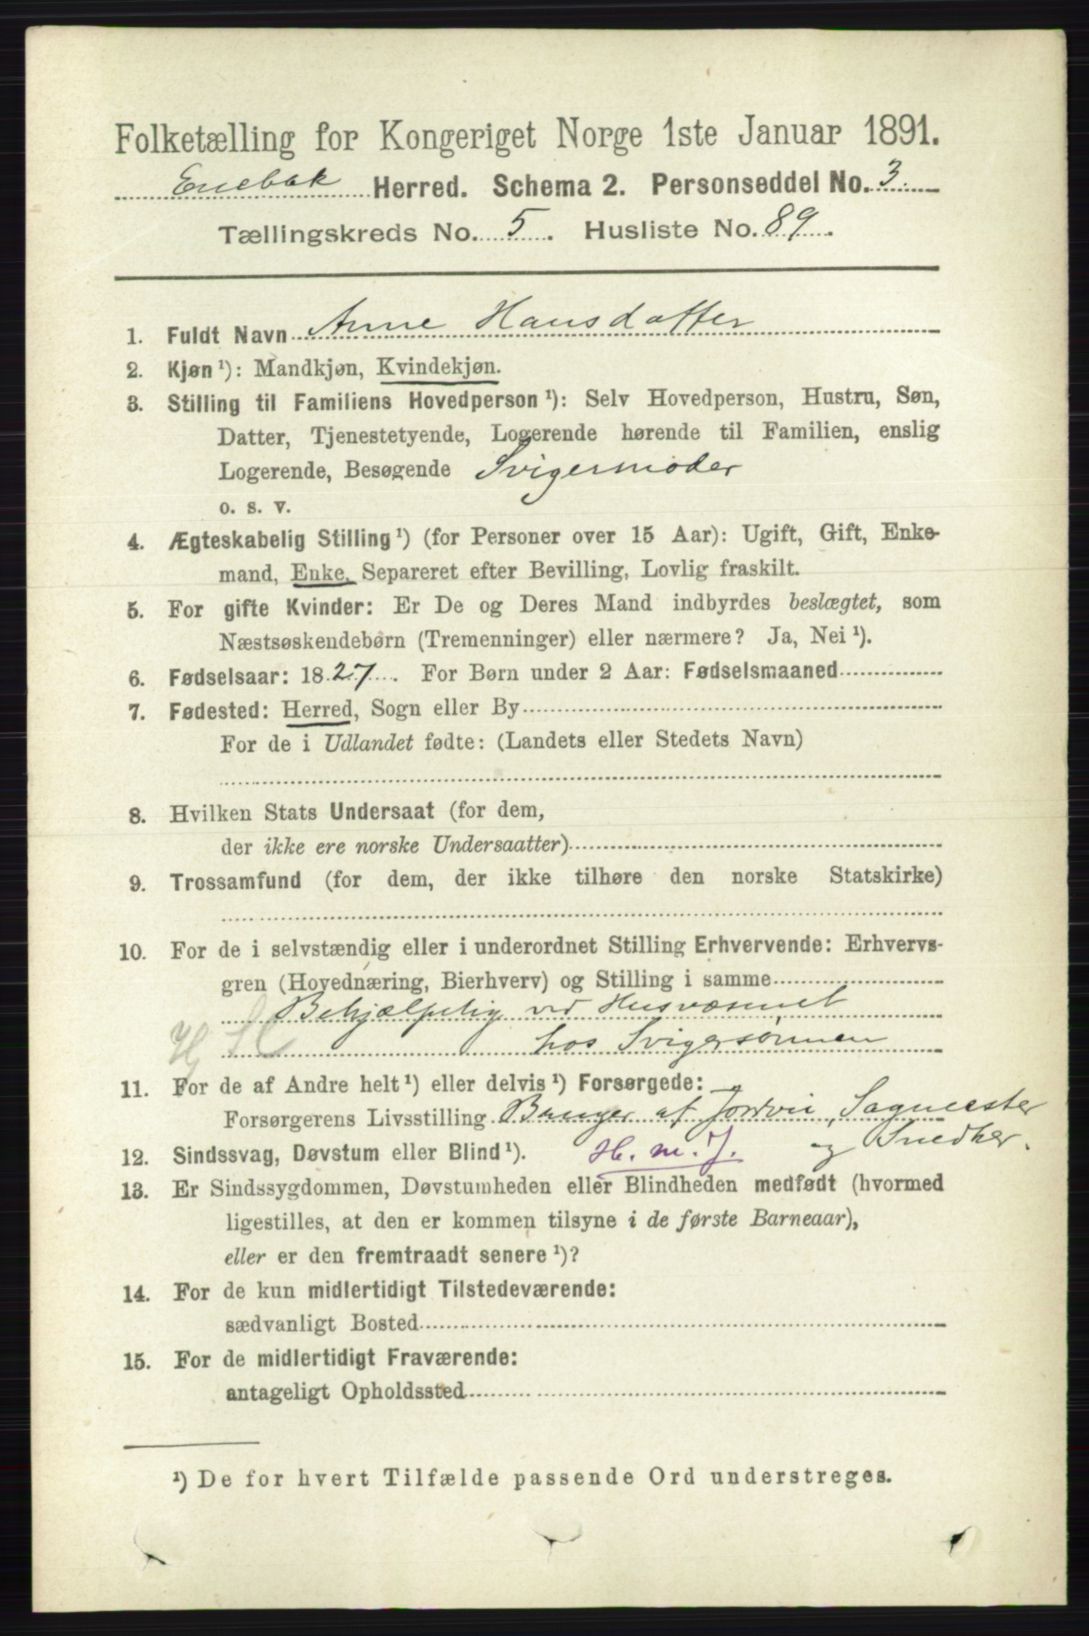 Folketælling for Kongeriget Norge 1ste Januar 1891.
Enebak Herred. Schema 2. Personseddel No. 3.
Tællingskreds No. 5. Husliste No. 89.
1. Fuldt Navn Anne Hansdatter
2. Kjøn ¹): Mandkjøn, Kvindekjøn.
3. Stilling til Familiens Hovedperson ¹): Selv Hovedperson, Hustru, Søn,
Datter, Tjenestetyende, Logerende hørende til Familien, enslig
Logerende, Besøgende Svigermoder
o. s. v.
4. Ægteskabelig Stilling ¹) (for Personer over 15 Aar): Ugift, Gift, Enke-
mand, Enke, Separeret efter Bevilling, Lovlig fraskilt.
5. For gifte Kvinder: Er De og Deres Mand indbyrdes beslægtet, som
Næstsøskendebørn (Tremenninger) eller nærmere? Ja, Nei ¹).
6. Fødselsaar: 1827. For Børn under 2 Aar: Fødselsmaaned
7. Fødested: Herred, Sogn eller By
For de i Udlandet fødte: (Landets eller Stedets Navn)
8. Hvilken Stats Undersaat (for dem,
der ikke ere norske Undersaatter)
9. Trossamfund (for dem, der ikke tilhøre den norske Statskirke)
10. For de i selvstændig eller i underordnet Stilling Erhvervende: Erhvervs-
gren (Hovednæring, Bierhverv) og Stilling i samme
Behjælpelig ved Husvæsenet
hos Svigersønnen
11. For de af Andre helt ¹) eller delvis ¹) Forsørgede:
Forsørgerens Livsstilling Bruger af Jordvei, Sagmester
og Snedker.
12. Sindssvag, Døvstum eller Blind ¹). H. m. J.
13. Er Sindssygdommen, Døvstumheden eller Blindheden medfødt (hvormed
ligestilles, at den er kommen tilsyne i de første Barneaar),
eller er den fremtraadt senere ¹)?
14. For de kun midlertidigt Tilstedeværende:
sædvanligt Bosted
15. For de midlertidigt Fraværende:
antageligt Opholdssted
¹) De for hvert Tilfælde passende Ord understreges.